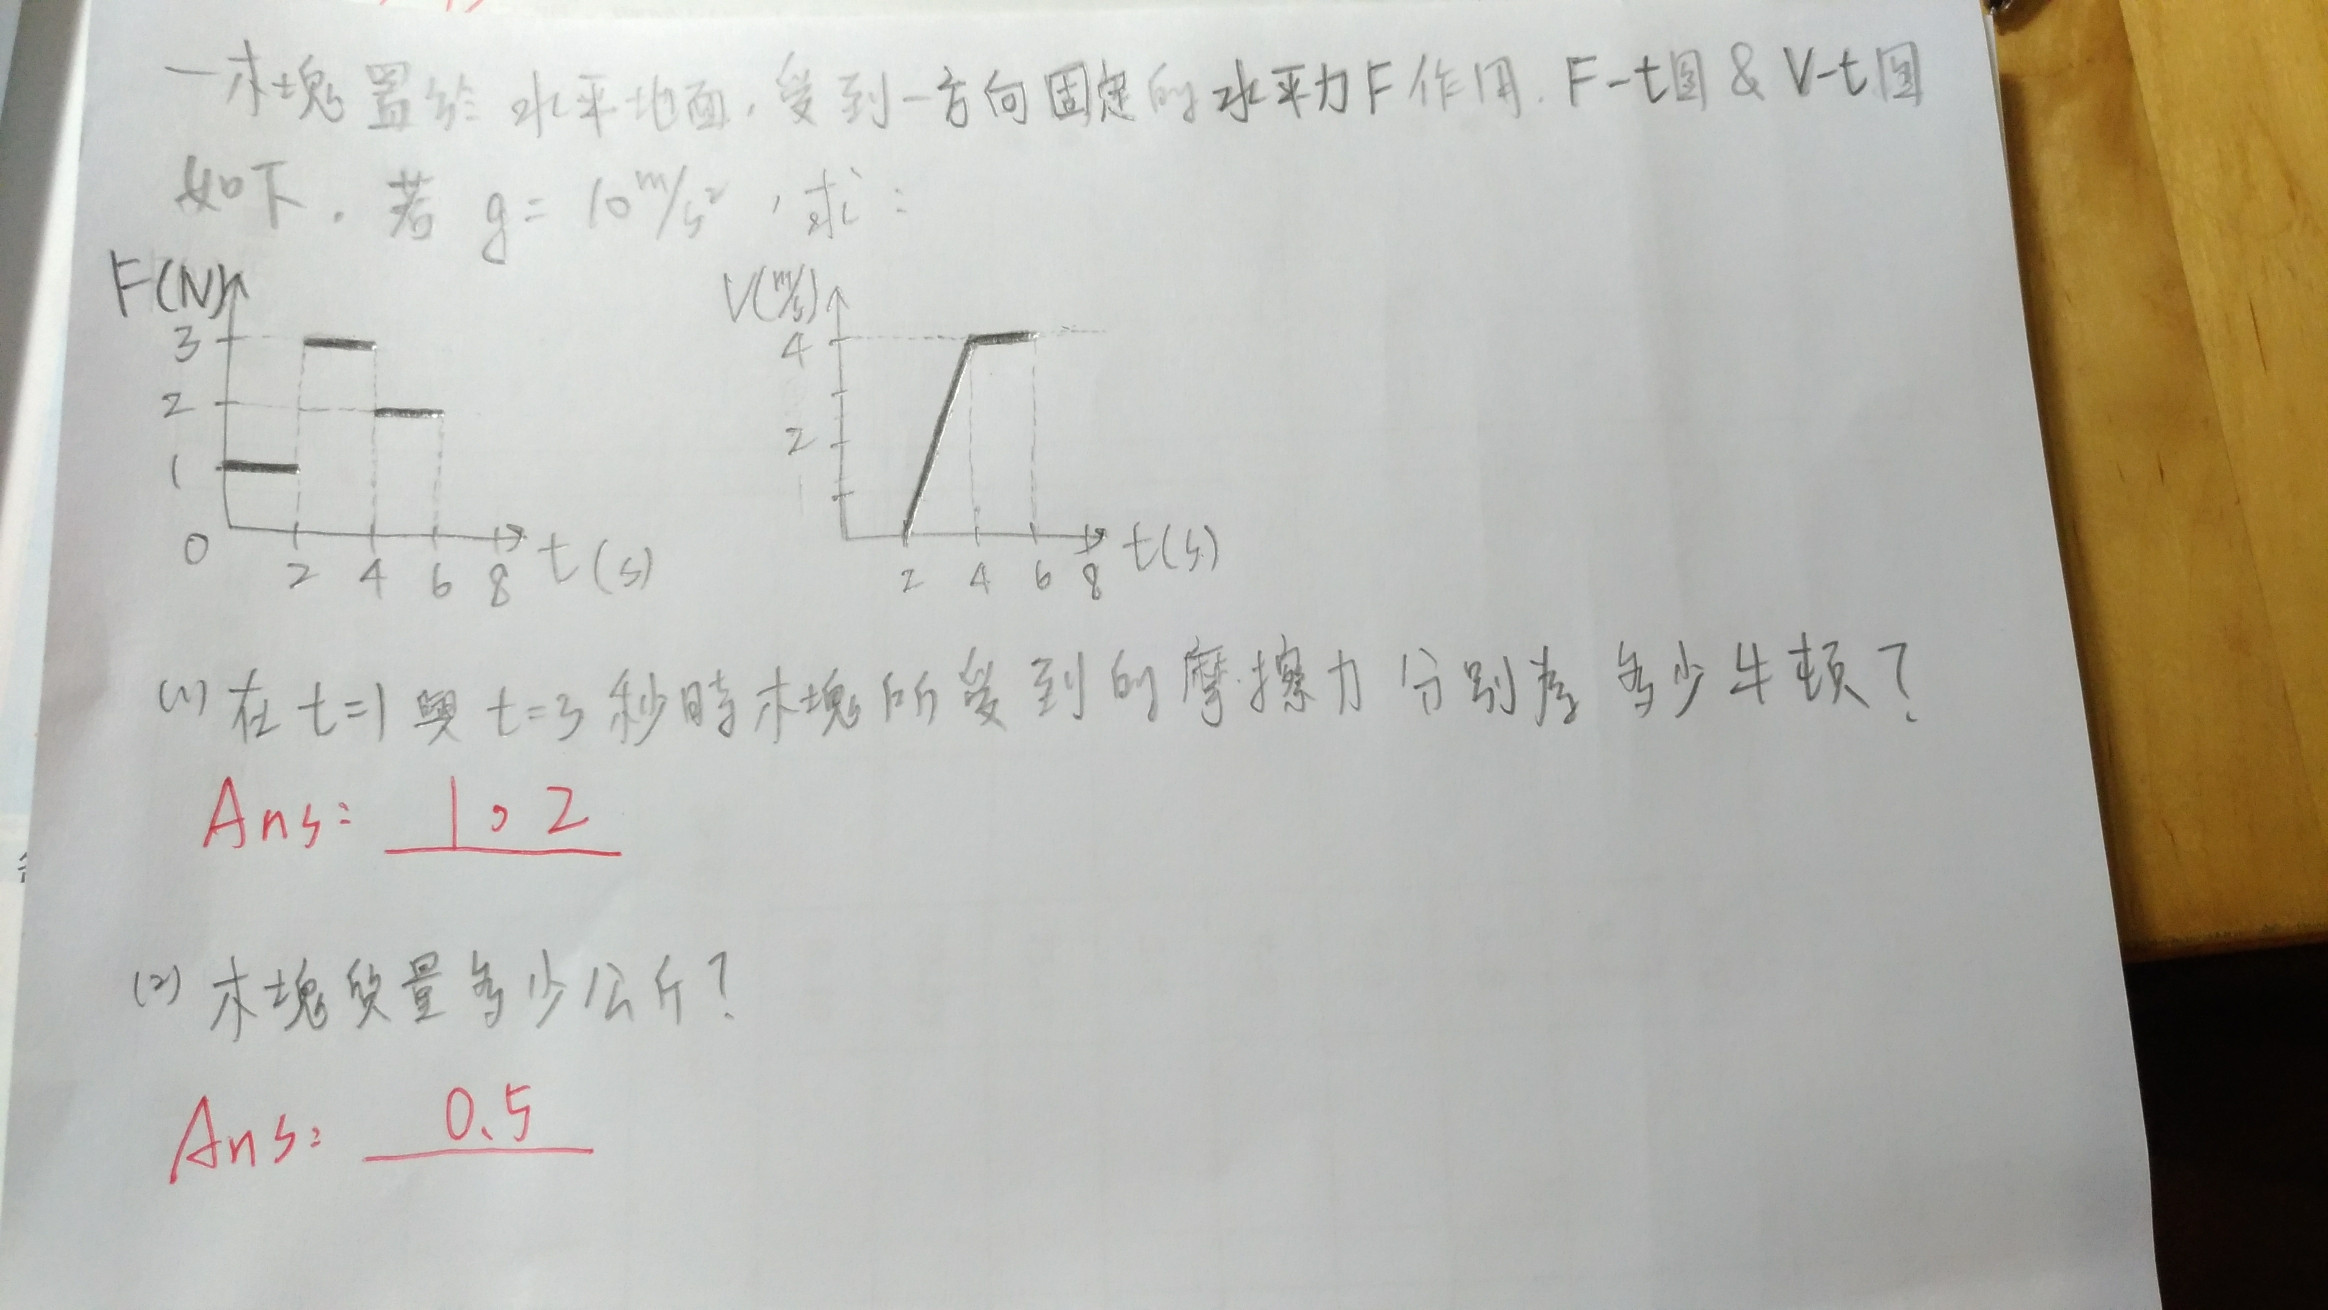 一木塊置於水平地面,受到一方向固定的水平力F作用.F-t圖&V-t圖
如下.若g=10m/s²,求:
F(N)
3
2
1
0
2 4 6 8 t(s)
V(m/s)
4
2
2 4 6 8 t(s)
(1)在t=1與t=3秒時木塊所受到的摩擦力分別為多少牛頓?
Ans: 1,2
(2)木塊質量多少公斤?
Ans: 0.5